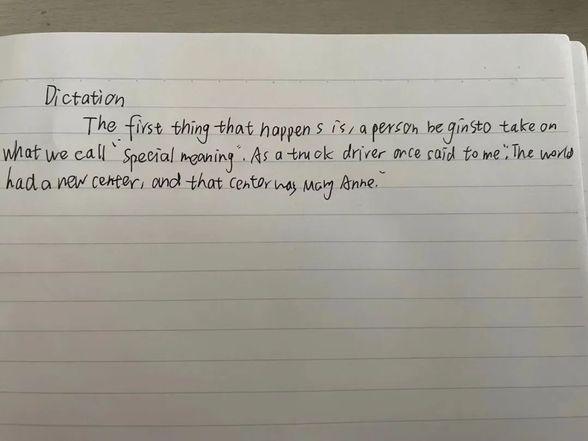 Dictation
The first thing that happens is, a person begins to take on
what we call "special meaning". As a truck driver once said to me: "The world
had a new center, and that center was Mary Anne."